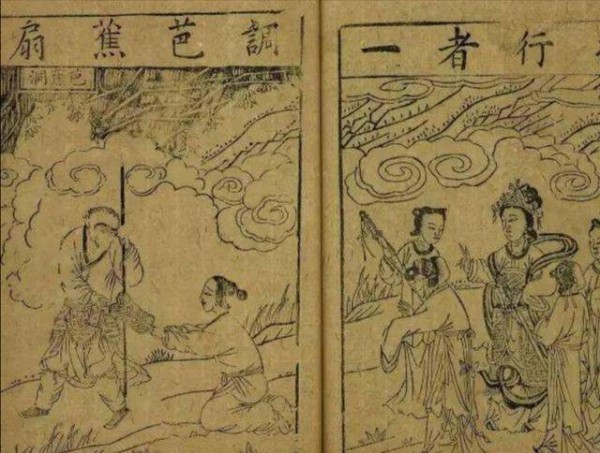 行者一
調芭蕉扇
芭蕉洞